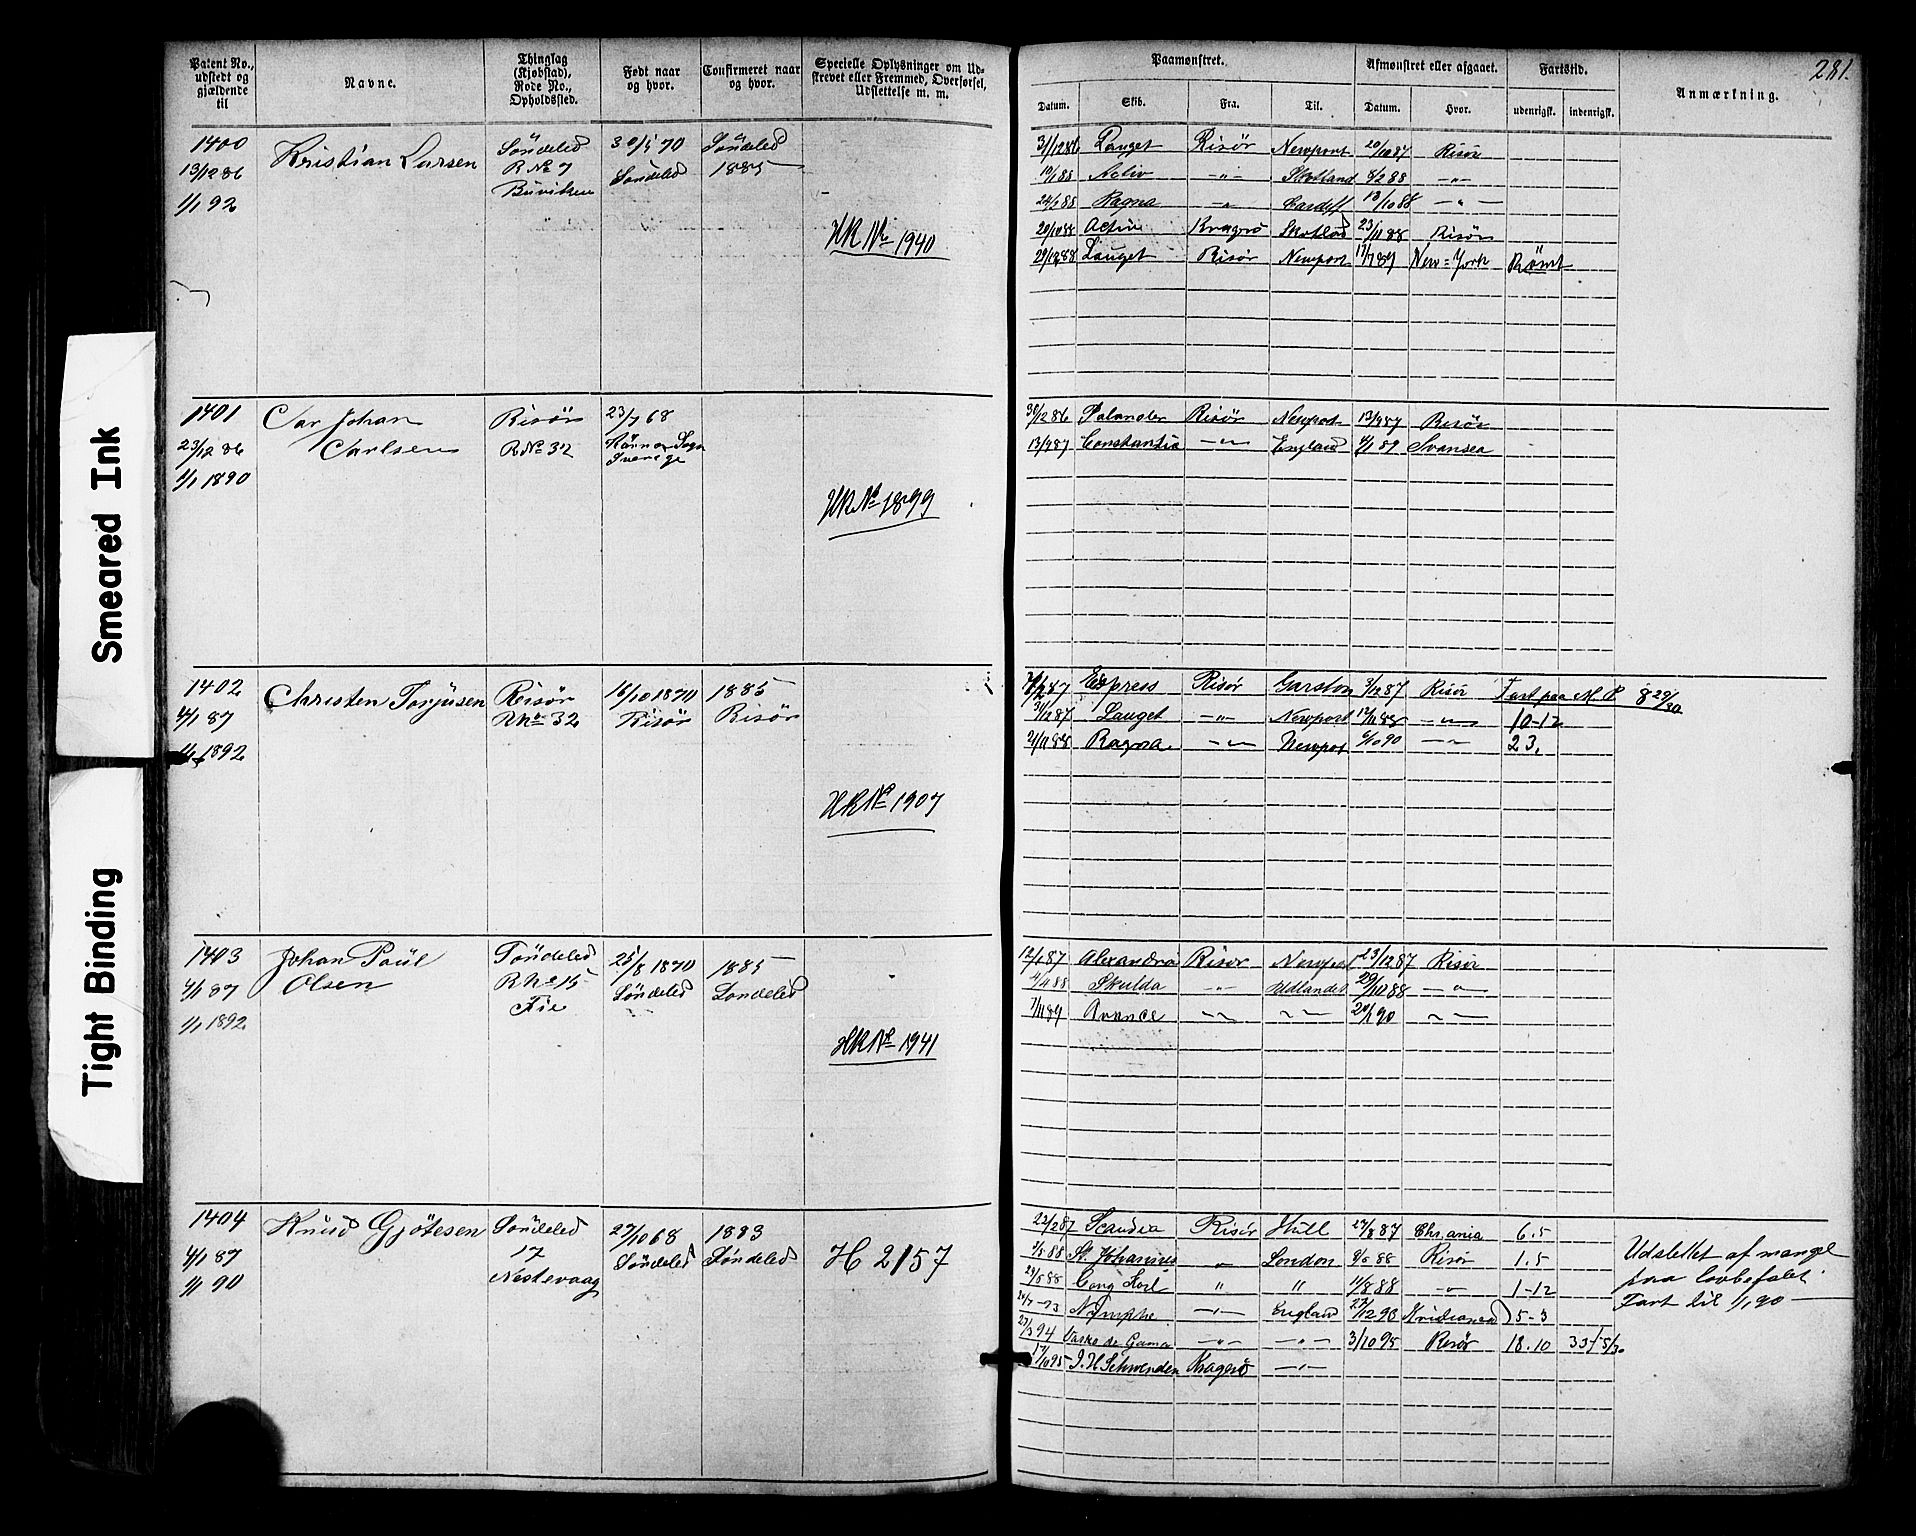 281.
Patent No., udstedt og gjældende til
Navne.
Thinglag (Kjøbstad), Rode No., Opholdssted.
Født naar og hvor.
Confirmeret naar og hvor.
Specielle Oplysninger om Udskrevet eller Fremmed, Overførsel, Udslettelse m. m.
Paamønstret.
Afmønstret eller afgaaet.
Fartstid.
Anmærkning.
Datum. Skib. Fra. Til. Datum. Hvor. udenrigsk. indenrigsk.
1400 Kristian Larsen Söndeled 30/5 70 Söndeled
13/12 86 R No 7 Söndeled 1885
1/1 92 Buviken
HR No 1940
31/12 86 Lauget Risör Newport 20/10 87 Risör
10/1 88 Activ —"— Skotland 8/2 88 —"—
24/2 88 Ragna —"— Cardiff 13/10 88 —"—
20/10 88 Activ Kragerö Skotland 23/11 88 Risör
29/12 88 Lauget Risör Newport 17/7 89 New=York Römt
1401 Carl Johan Carlsen Risör 23/7 68
23/12 86 R No 32
1/1 1890 Sverige
HR No 1899
30/12 86 Palander Risör Newport 13/9 87 Risör
13/9 87 Constantia —"— England 4/1 89 Svansea
1402 Christen Torjusen Risör 16/10 1870 1885
4/1 87 R No 32 Risör Risör
1/1 1892
HR No 1907
Express Risör Garston 3/12 87 Risör Fart paa M. P. 8 29/30
31/12 87 Lauget —"— Newport 12/11 88 —"— 10-12
21/11 88 Ragna —"— Newpor 6/10 90 —"— 23.
1403 Johan Paul Olsen Söndeled 25/8 1870 1885
4/1 87 R No 15 Söndeled Söndeled
1/1 1892 Fie
HR No 1941
12/1 87 Alexandra Risör Newport 23/12 87 Risör
4/4 88 Skulda —"— Udlandet 29/11 88 —"—
7/11 89 Avance —"— —"— 20/1 90 —"—
1404 Knud Gjötesen Söndeled 27/10 68 1883
4/1 87 17 Söndeled Söndeled
1/1 90 Nestevaag
H 2157
22/2 87 Scandia Risör Hull 27/8 87 Chr.ania 6.5
2/5 88 St. Johannes " London 9/5 88 Risör 1.5
24/5 88 Cong Karl " " 11/8 88 —"— 1-12
24/7 -93 Nymphe —"— England 27/12 93 5-3
27/3 94 Vasko de Gama —"— —"— 3/10 95 Risør 18.10
17/10 95 J. H. Schwenden Kragerö —"—
Udslettet af mangel
paa lovbefalet
Fart til 1/1 90
Smeared Ink
Tight Binding